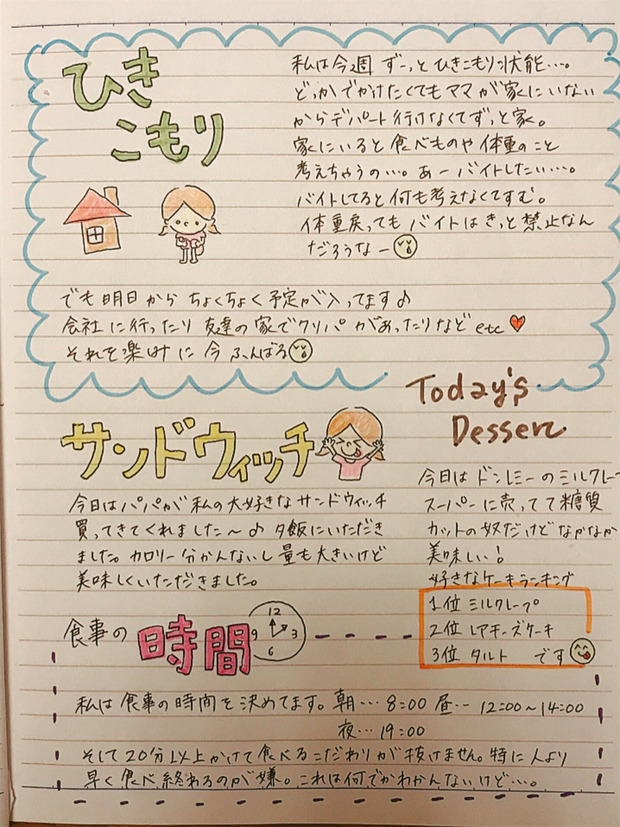 ひき
こもり
私は今週 ずーっと ひきこもり状態…。
どっかでかけたくてもママが家にいない
からデパート行けなくてずっと家。
家にいると食べものや体重のこと
考えちゃうの…。あーバイトしたい…。
バイトしてると何も考えなくてすむ。
体重戻ってもバイトはきっと禁止なん
だろうなー
でも明日から ちょくちょく予定が入ってます♪
会社に行ったり 友達の家でクリパがあったりなど etc♥
それを楽しみに今ふんばろ
サンドウィッチ
今日はパパが私の大好きなサンドウィッチ
買ってきてくれました〜♪ 夕飯にいただき
ました。カロリー分かんないし量も大きいけど
美味しくいただきました。
Today's
Dessert
今日はドンレミーのミルクレー
スーパーに売ってて糖質
カットの奴だけどなかなか
美味しい!
好きなケーキランキング
1位 ミルクレープ
2位 レアチーズケーキ
3位 タルト です
食事の時間
12
3
6
9
私は食事の時間を決めてます。朝…8:00 昼…12:00〜14:00
夜…19:00
そして20分以上かけて食べるこだわりが抜けません。特に人より
早く食べ終わるのが嫌。これは何でかわかんないけど…。